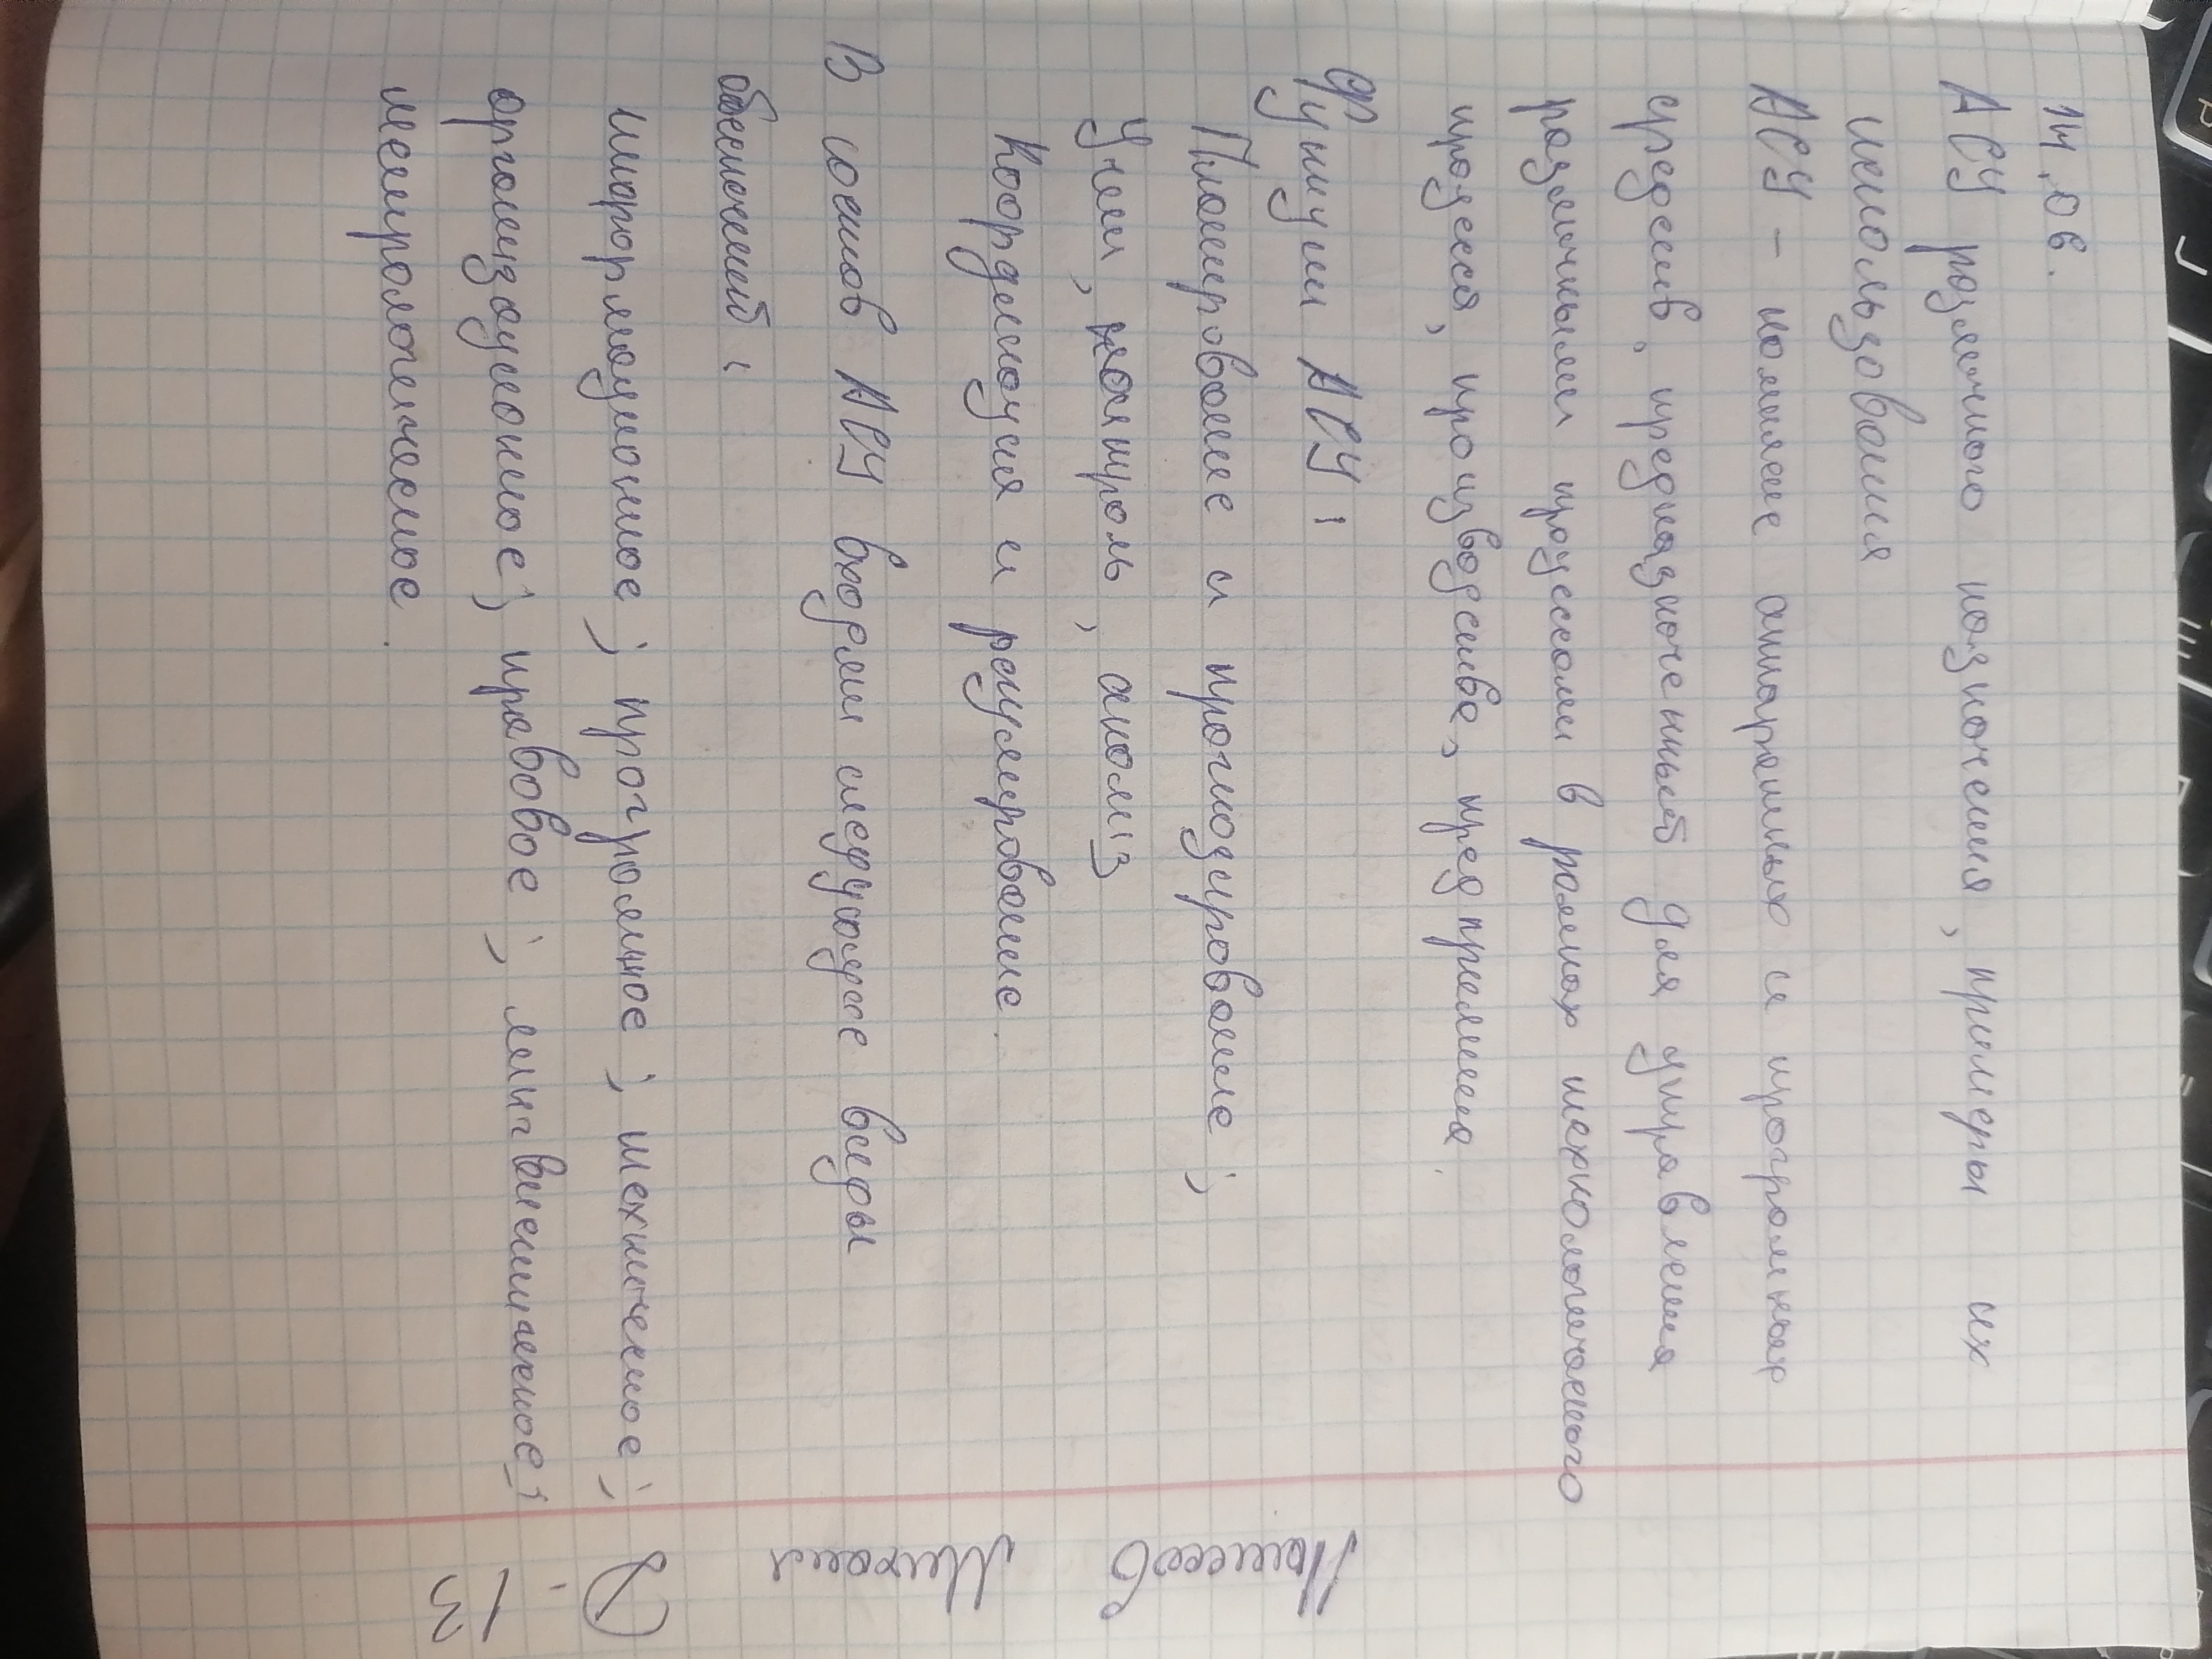 14.06.
АСУ различного назначения, примеры их
использования
АСУ - комплекс аппаратных и програмных
средств, предназначенный для управления
различными процессами в рамках технологического
процесса, производства, предприятия.
Функции АСУ:
Планирование и прогнозирование;
Учет, контроль, анализ
Координация и регулирование.
В состав АСУ входят следующие виды
обеспечений:
информационное; програмное; техническое;
организационное; правовое; лингвистическое;
метрологическое.
Михаил
Д-
13